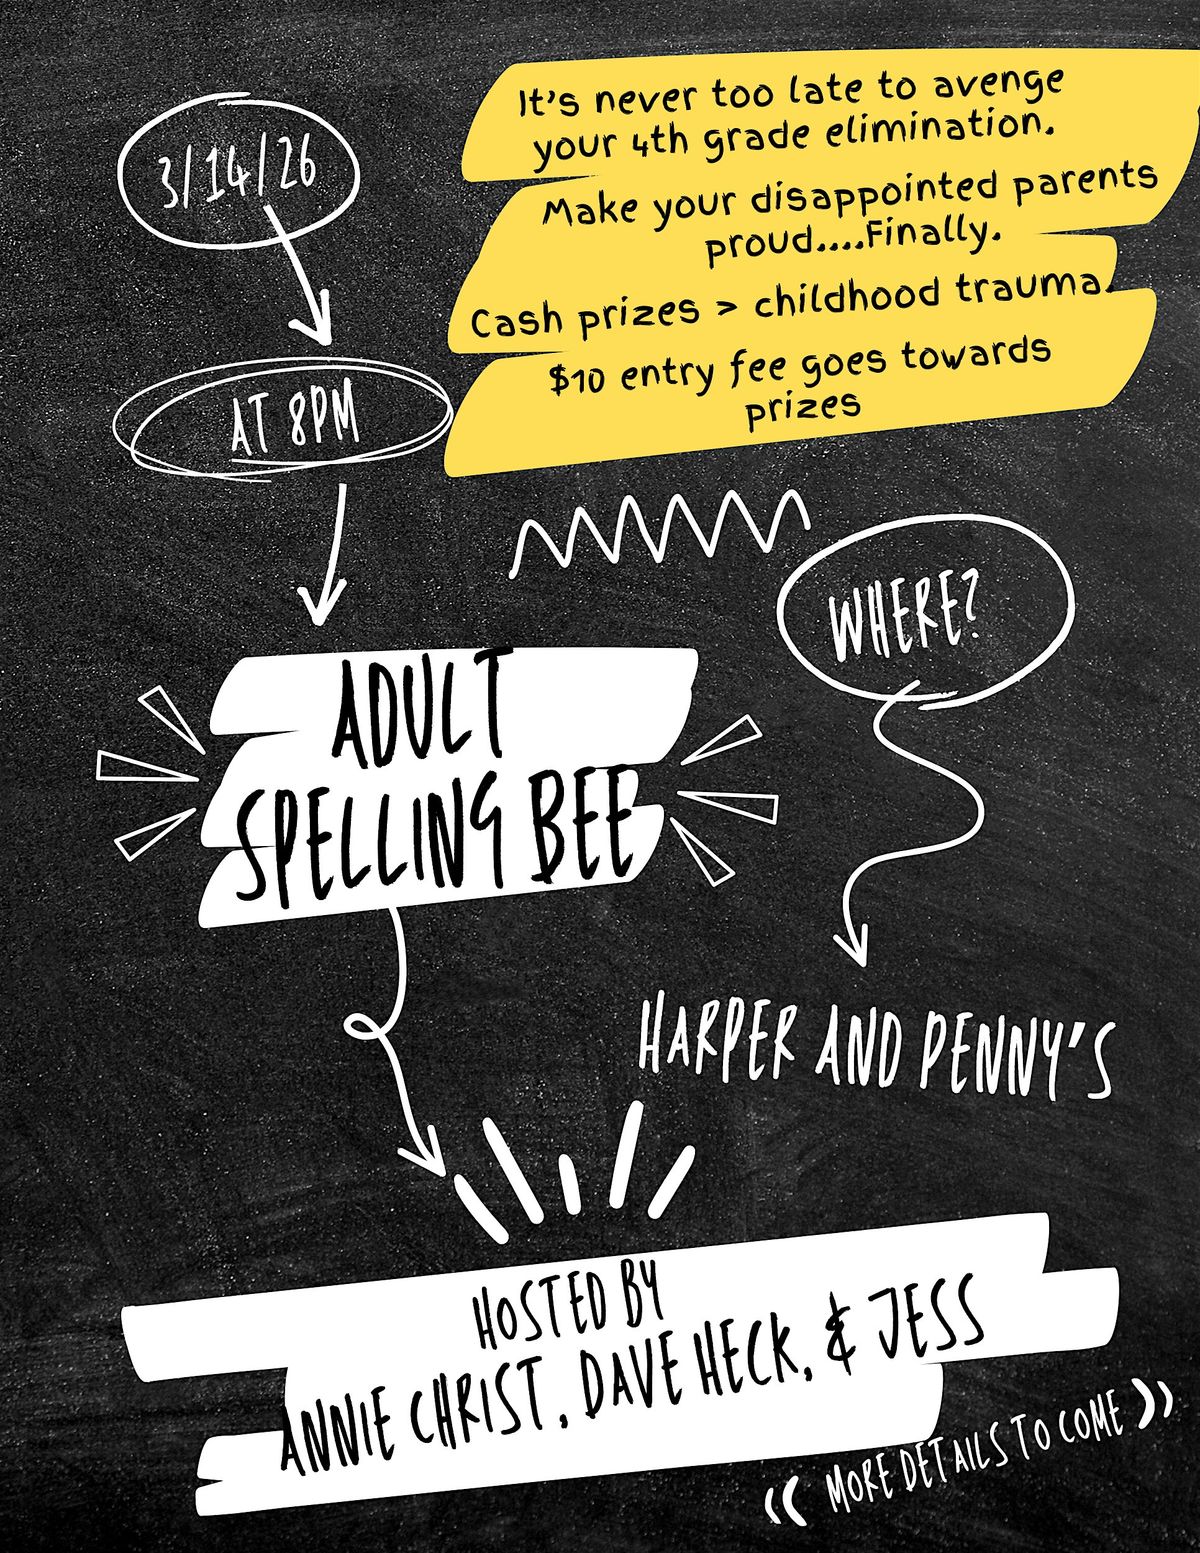 3/14/26
It's never too late to avenge
your 4th grade elimination.
Make your disappointed parents
proud....Finally.
Cash prizes > childhood trauma.
$10 entry fee goes towards
prizes
AT 8PM
WHERE?
ADULT
SPELLING BEE
HARPER AND PENNY'S
HOSTED BY
ANNIE CHRIST, DAVE HECK, & JESS
(( MORE DETAILS TO COME ))